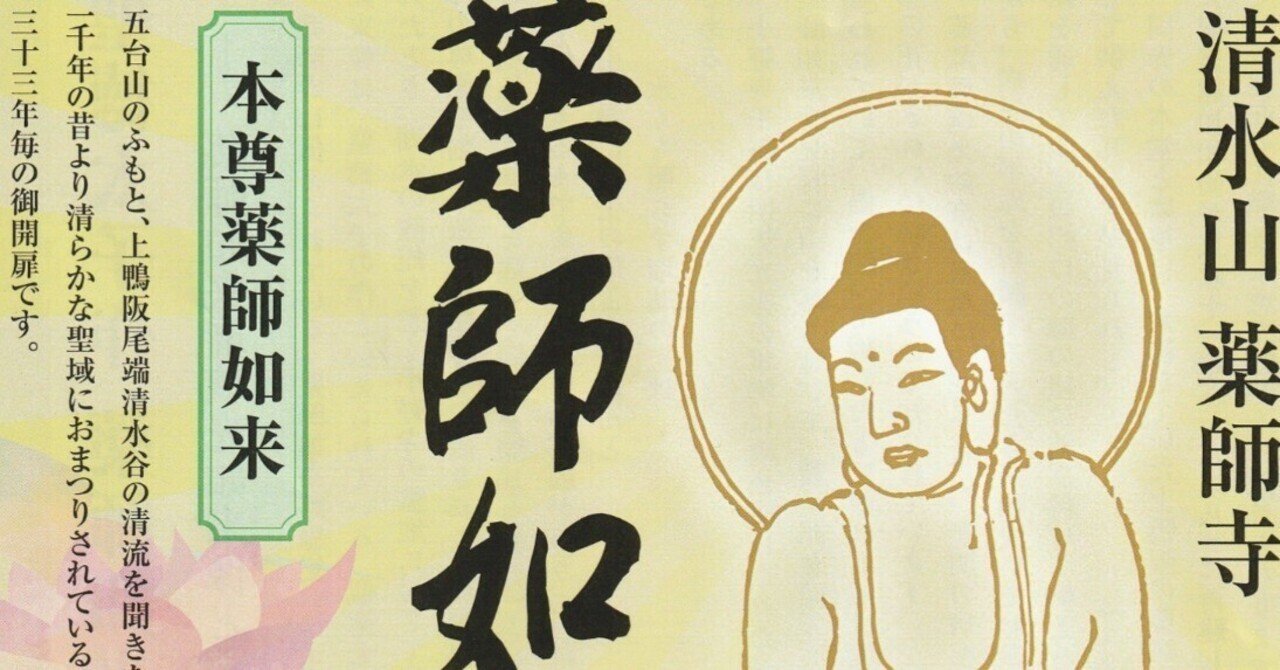 清水山 薬師寺
薬師如
本尊薬師如来
五台山のふもと、上鴨阪尾端清水谷の清流を聞き
一千年の昔より清らかな聖域におまつりされている
三十三年毎の御開扉です。